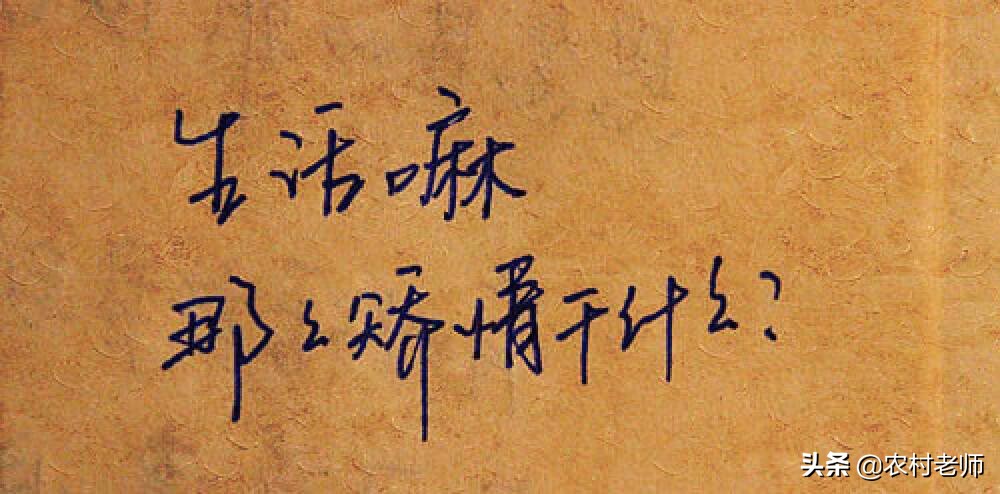 生活嘛
那么矫情干什么?
头条 @农村老师